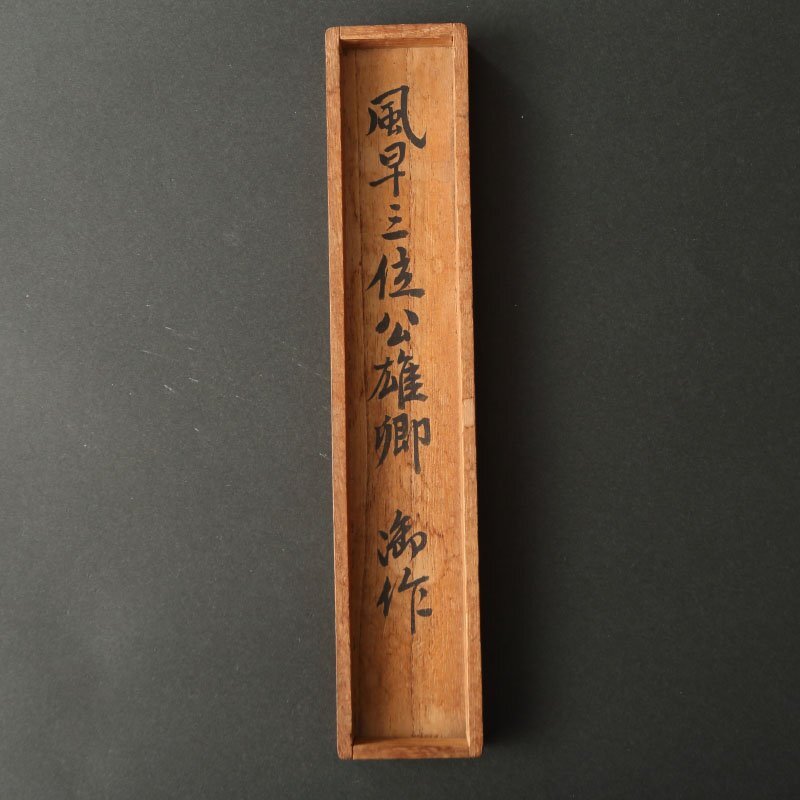 風早三位公雄卿　御作